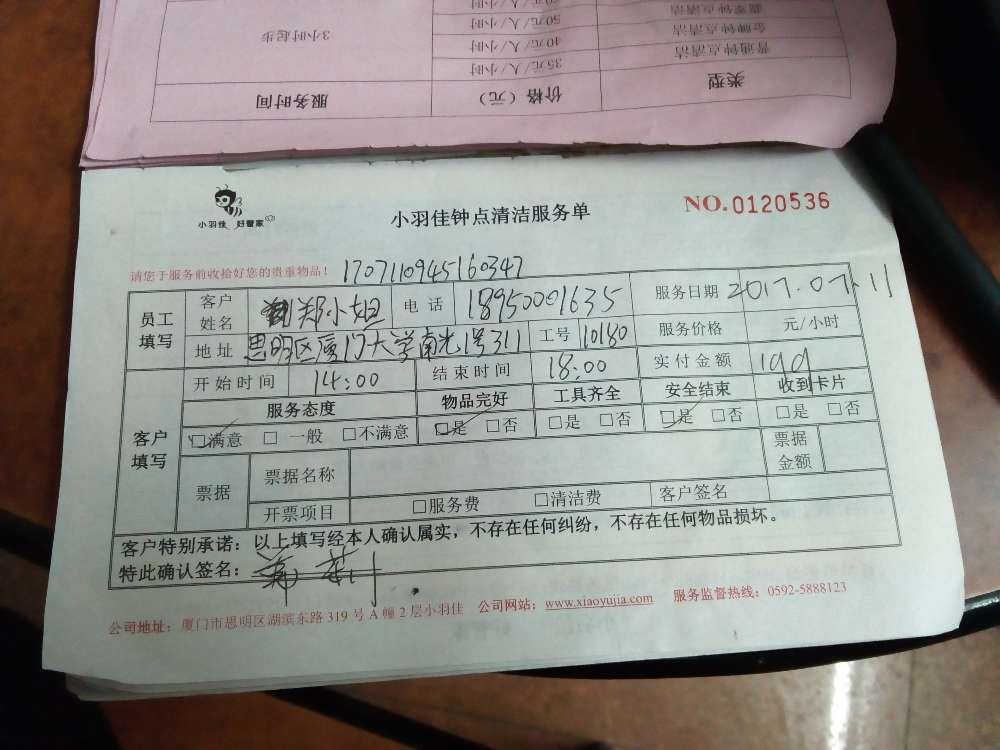 3小时起步 50元/人/小时 金牌钟点清洁
40元/人/小时 普通钟点清洁
35元/人/小时
服务时间 价格（元） 类型
小羽佳 好管家
小羽佳钟点清洁服务单
NO.0120536
请您于服务前收拾好您的贵重物品！ 1707110945160347
员工填写 客户姓名 郑小姐 电话 18950001635 服务日期 2017.07.11
地址 思明区厦门大学南光1号311 工号 10180 服务价格 元/小时
客户填写 开始时间 14:00 结束时间 18:00 实付金额 199
服务态度 物品完好 工具齐全 安全结束 收到卡片
□满意 □一般 □不满意 □是 □否 □是 □否 □是 □否 □是 □否
票据 票据名称 票据金额
开票项目 □服务费 □清洁费 客户签名
客户特别承诺：以上填写经本人确认属实，不存在任何纠纷，不存在任何物品损坏。
特此确认签名：
公司地址：厦门市思明区湖滨东路319号A幢2层小羽佳 公司网站：www.xiaoyujia.com 服务监督热线：0592-5888123